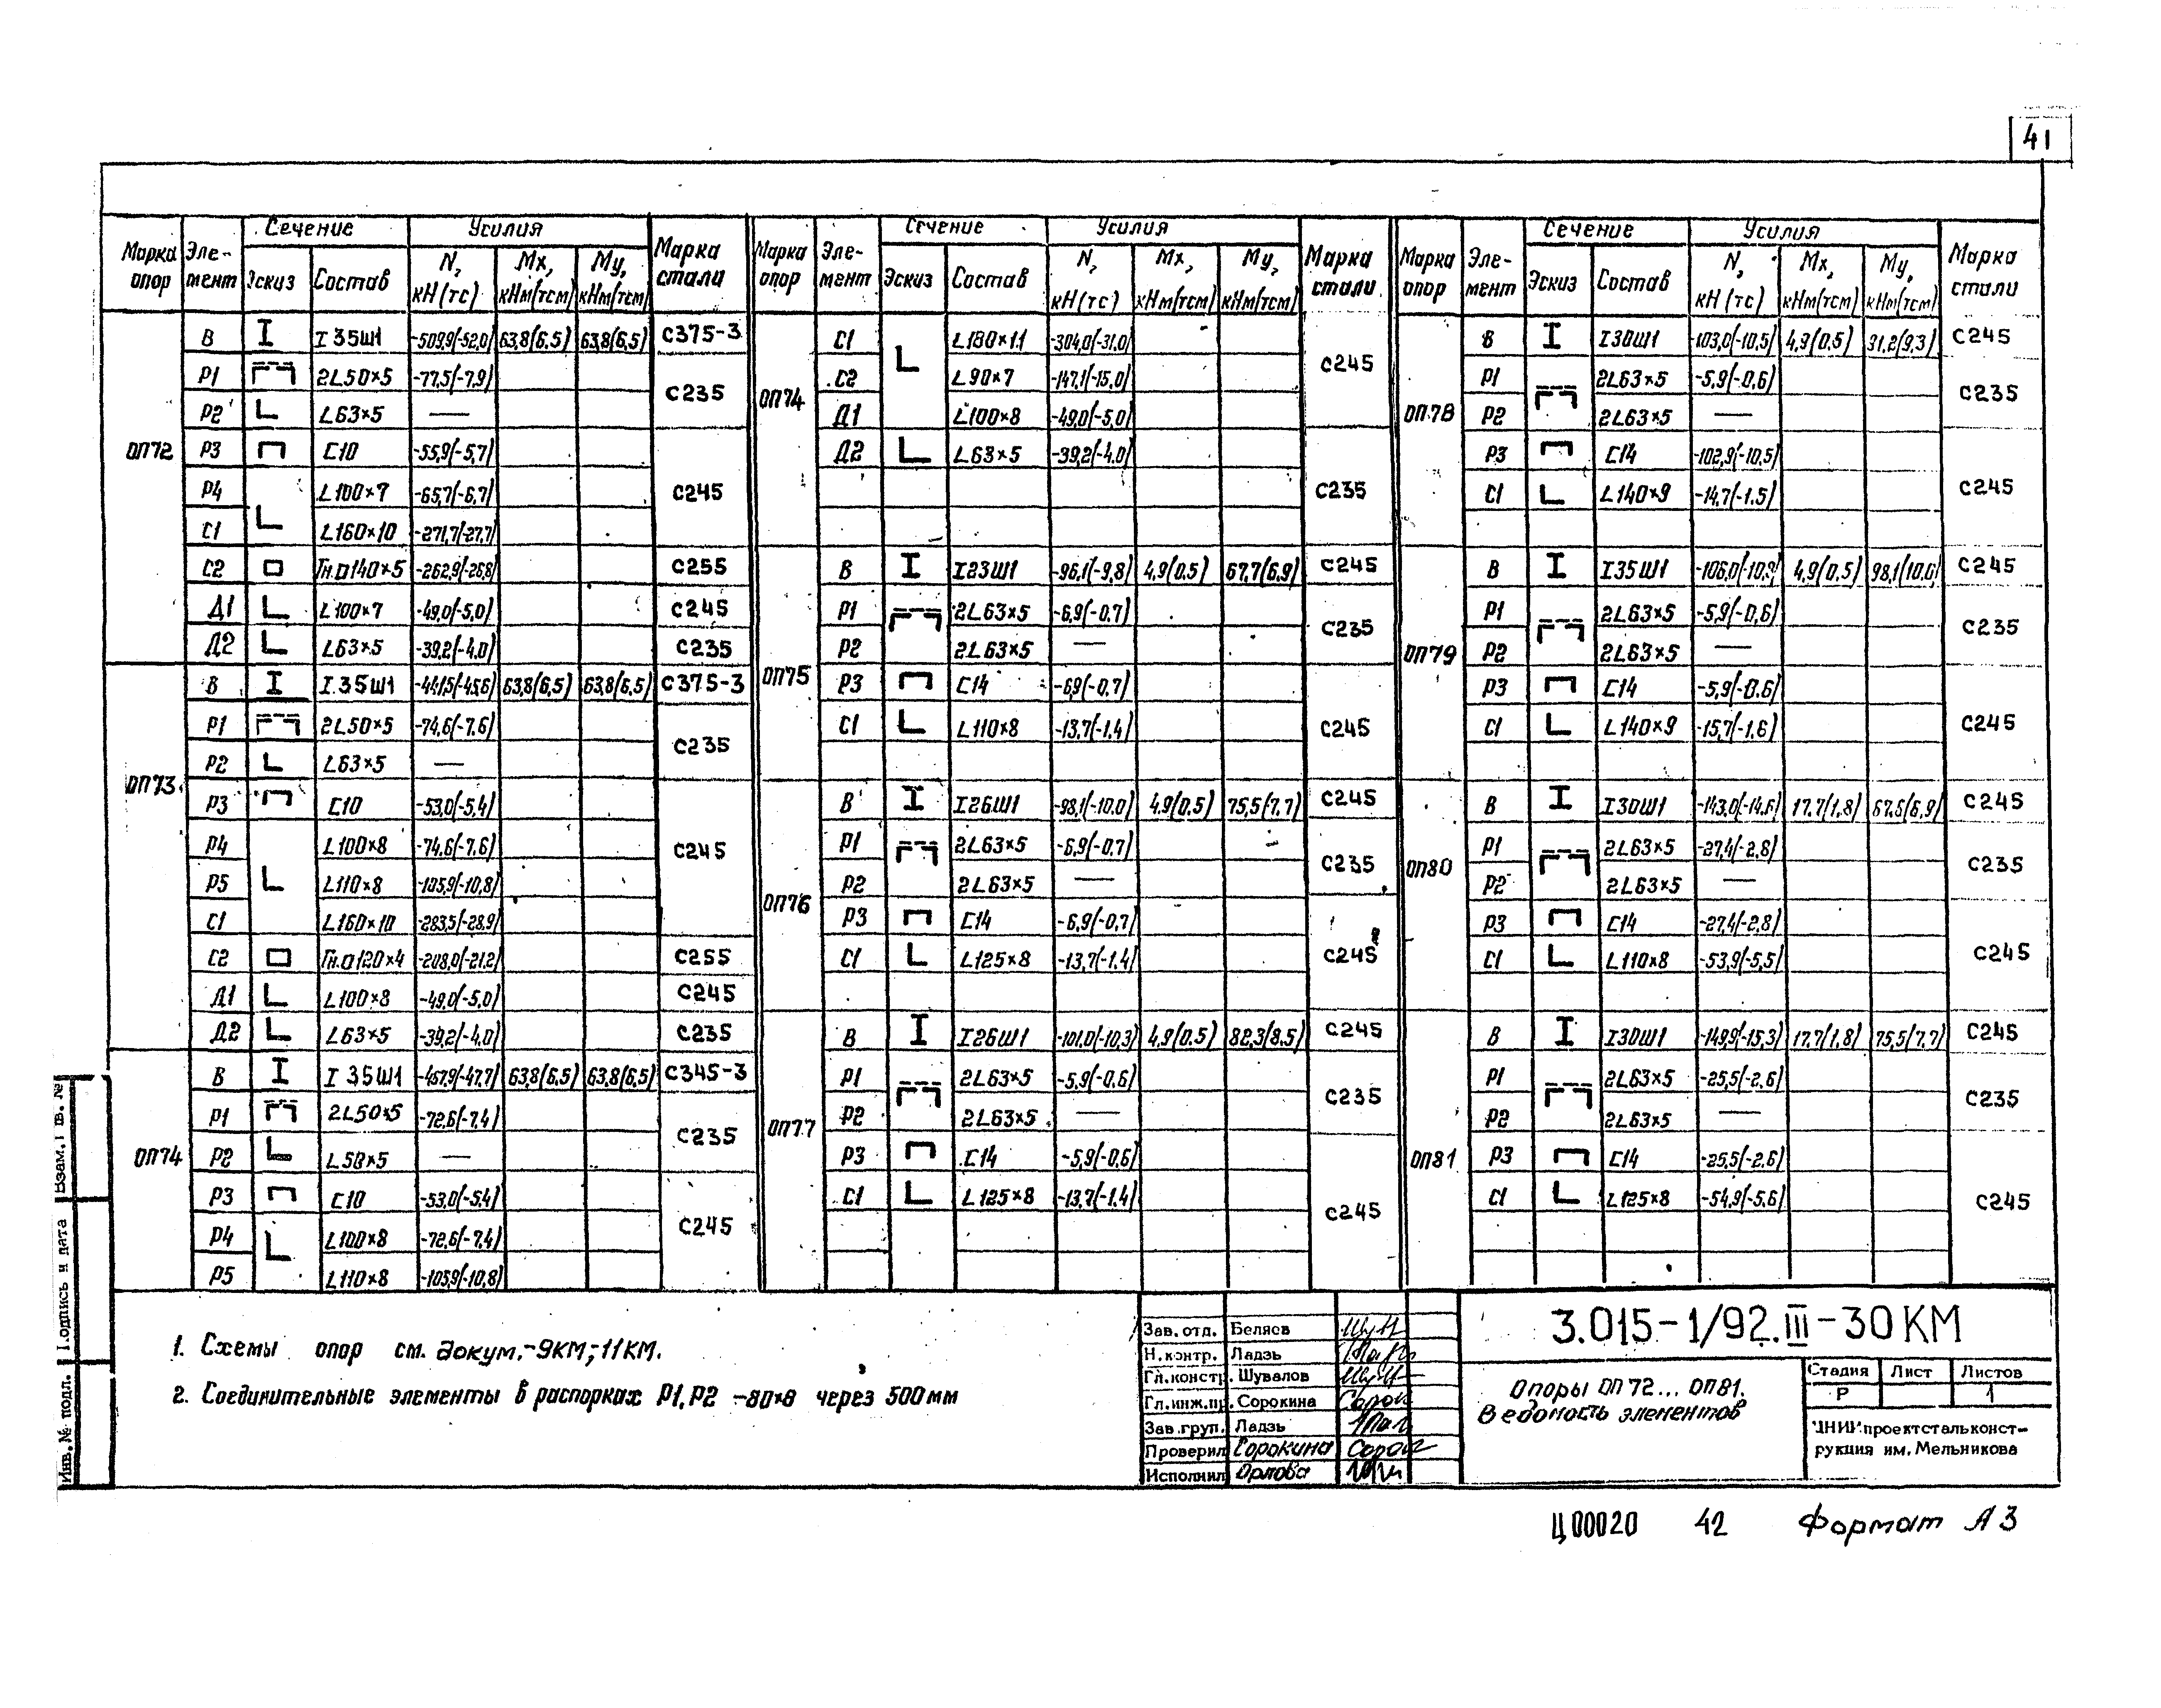 41
Марка опор | Элемент | Сечение | Усилия | Марка стали
Эскиз | Состав | N, кН(тс) | Mx, кНм(тсм) | My, кНм(тсм)
ОП72
В I 35Ш1 -509,9(-52,0) 63,8(6,5) 63,8(6,5) С375-3
Р1 2L50×5 -77,5(-7,9) С235
Р2 L63×5 —
Р3 С10 -55,9(-5,7) С245
Р4 L100×7 -65,7(-6,7)
С1 L160×10 -271,7(-27,7)
С2 Гн.□140×5 -262,9(-26,8) С255
Д1 L100×7 -49,0(-5,0) С245
Д2 L63×5 -39,2(-4,0) С235
ОП73
В I 35Ш1 -441,5(-45,6) 63,8(6,5) 63,8(6,5) С375-3
Р1 2L50×5 -74,6(-7,6) С235
Р2 L63×5 —
Р3 С10 -53,0(-5,4) С245
Р4 L100×8 -74,6(-7,6)
Р5 L110×8 -105,9(-10,8)
С1 L160×10 -283,5(-28,9)
С2 Гн.□120×4 -208,0(-21,2) С255
Д1 L100×8 -49,0(-5,0) С245
Д2 L63×5 -39,2(-4,0) С235
ОП74
В I 35Ш1 -467,9(-47,7) 63,8(6,5) 63,8(6,5) С345-3
Р1 2L50×5 -72,6(-7,4) С235
Р2 L50×5 —
Р3 С10 -53,0(-5,4) С245
Р4 L100×8 -72,6(-7,4)
Р5 L110×8 -105,9(-10,8)
Марка опор | Элемент | Сечение | Усилия | Марка стали
Эскиз | Состав | N, кН(тс) | Mx, кНм(тсм) | My, кНм(тсм)
ОП74
С1 L180×11 -304,0(-31,0) С245
С2 L90×7 -147,1(-15,0)
Д1 L100×8 -49,0(-5,0)
Д2 L63×5 -39,2(-4,0) С235
ОП75
В I23Ш1 -96,1(-9,8) 4,9(0,5) 67,7(6,9) С245
Р1 2L63×5 -6,9(-0,7) С235
Р2 2L63×5 —
Р3 С14 -6,9(-0,7) С245
С1 L110×8 -13,7(-1,4)
ОП76
В I26Ш1 -98,1(-10,0) 4,9(0,5) 75,5(7,7) С245
Р1 2L63×5 -6,9(-0,7) С235
Р2 2L63×5 —
Р3 С14 -6,9(-0,7) С245
С1 L125×8 -13,7(-1,4)
ОП77
В I26Ш1 -101,0(-10,3) 4,9(0,5) 82,3(8,5) С245
Р1 2L63×5 -5,9(-0,6) С235
Р2 2L63×5 —
Р3 С14 -5,9(-0,6) С245
С1 L125×8 -13,7(-1,4)
Марка опор | Элемент | Сечение | Усилия | Марка стали
Эскиз | Состав | N, кН(тс) | Mx, кНм(тсм) | My, кНм(тсм)
ОП78
В I30Ш1 -103,0(-10,5) 4,9(0,5) 91,2(9,3) С245
Р1 2L63×5 -5,9(-0,6) С235
Р2 2L63×5 —
Р3 С14 -102,9(-10,5) С245
С1 L140×9 -14,7(-1,5)
ОП79
В I35Ш1 4,9(0,5) 98,1(10,0) С245
Р1 2L63×5 -5,9(-0,6) С235
Р2 2L63×5 —
Р3 С14 -5,9(-0,6) С245
С1 L140×9 -15,7(-1,6)
ОП80
В I30Ш1 -143,0(-14,6) 17,7(1,8) 67,6(6,9) С245
Р1 2L63×5 -27,4(-2,8) С235
Р2 2L63×5 —
Р3 С14 -27,4(-2,8) С245
С1 L110×8 -53,9(-5,5)
ОП81
В I30Ш1 -149,9(-15,3) 17,7(1,8) 75,5(7,7) С245
Р1 2L63×5 -25,5(-2,6) С235
Р2 2L63×5 —
Р3 С14 -25,5(-2,6) С245
С1 L125×8 -54,9(-5,6)
1. Схемы опор см. докум.-9КМ,-11КМ.
2. Соединительные элементы в распорках Р1,Р2 -80×8 через 500мм
Зав. отд. Беляев
Н.контр. Ладзь
Гл.констр. Шувалов
Гл.инж.пр. Сорокина
Зав.груп. Ладзь
Проверил Сорокина
Исполнил Орлова
3.015-1/92.III-30КМ
Опоры ОП72...ОП81.
Ведомость элементов
Стадия Лист Листов
Р 1
ЦНИИпроектстальконст-
рукция им. Мельникова
Инв.№ подл. Подпись и дата Взам.инв.№
Ц00020 42 Формат А3